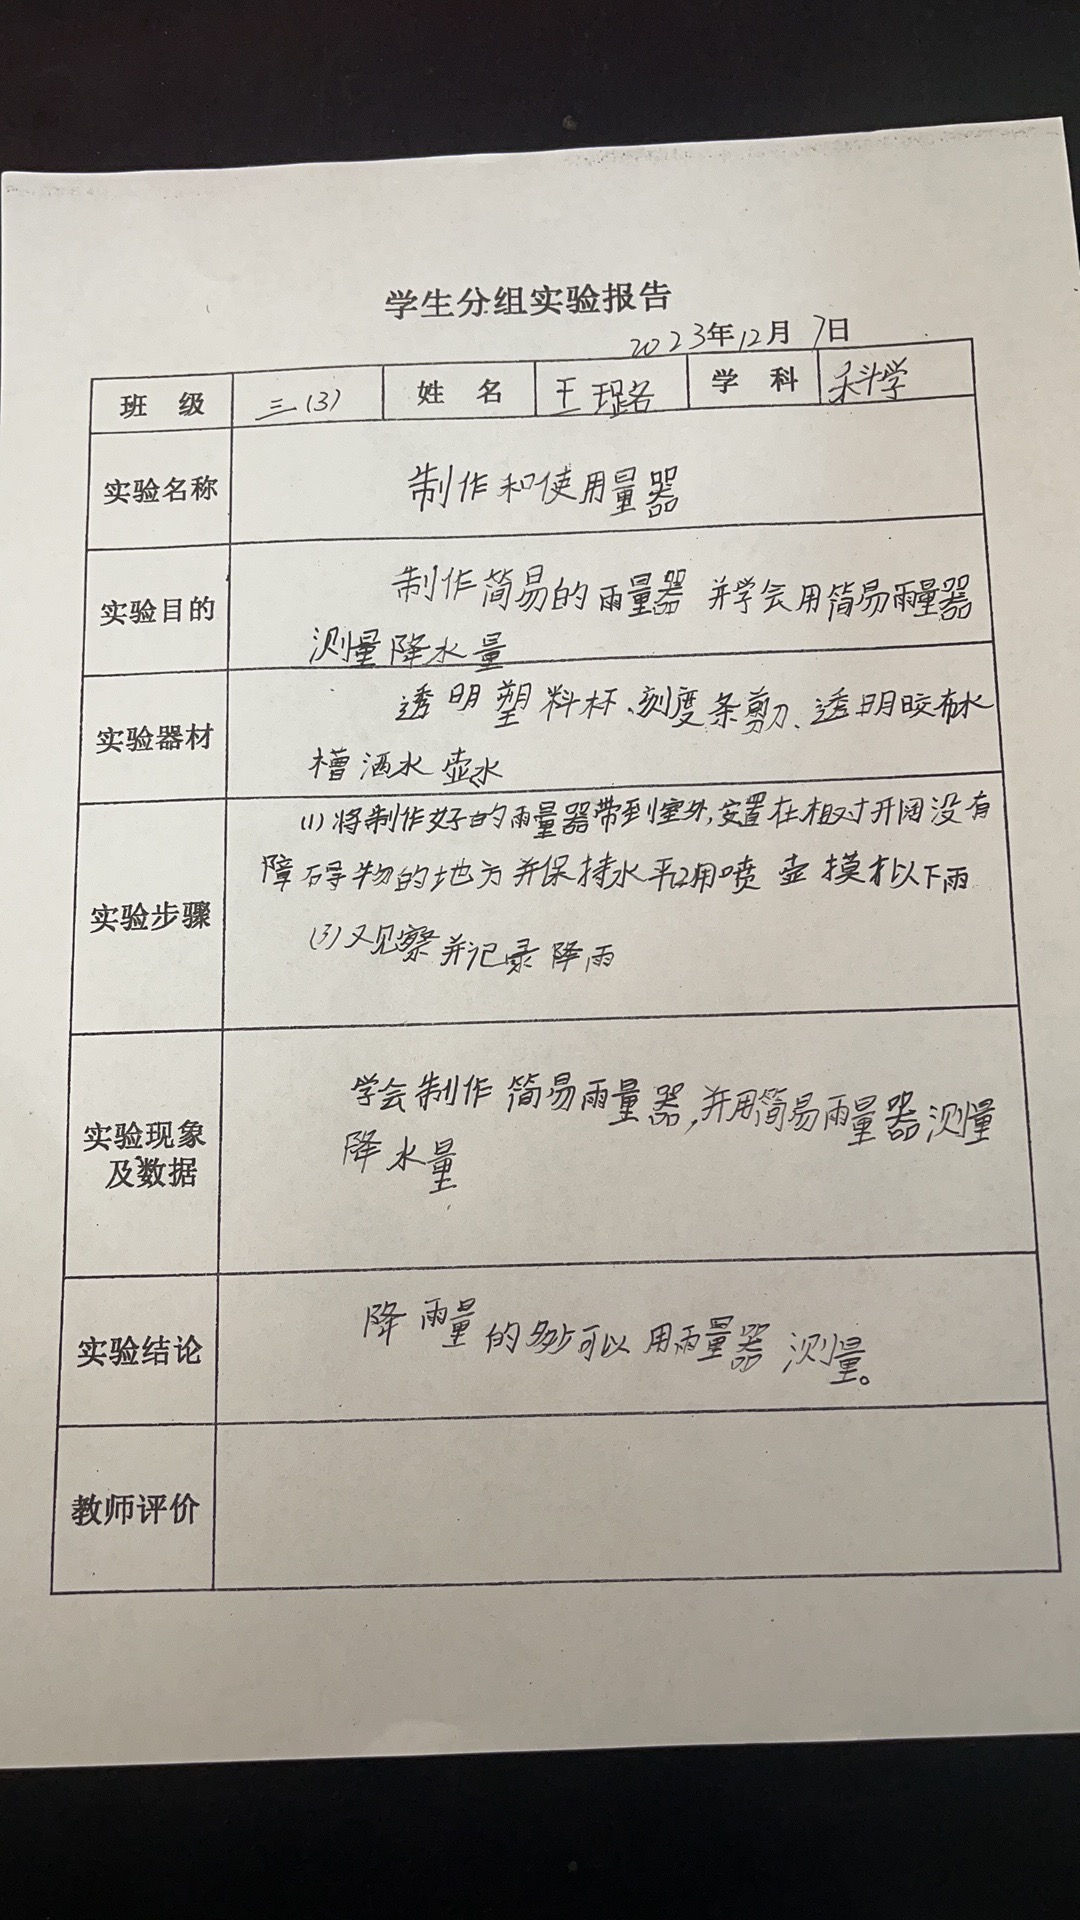 学生分组实验报告
2023年12月7日
班 级 三(3) 姓 名 王璐 学 科 科学
实验名称 制作和使用量器
实验目的 制作简易的雨量器 并学会用简易雨量器
测量降水量
实验器材 透明塑料杯、刻度条剪刀、透明胶布水
槽洒水壶水
实验步骤 (1)将制作好的雨量器带到室外,安置在相对开阔没有
障碍物的地方并保持水平用喷壶摸拟以下雨
(3)观察并记录降雨
实验现象
及数据
学会制作简易雨量器,并用简易雨量器测量
降水量
实验结论 降雨量的多少可以用雨量器测量。
教师评价